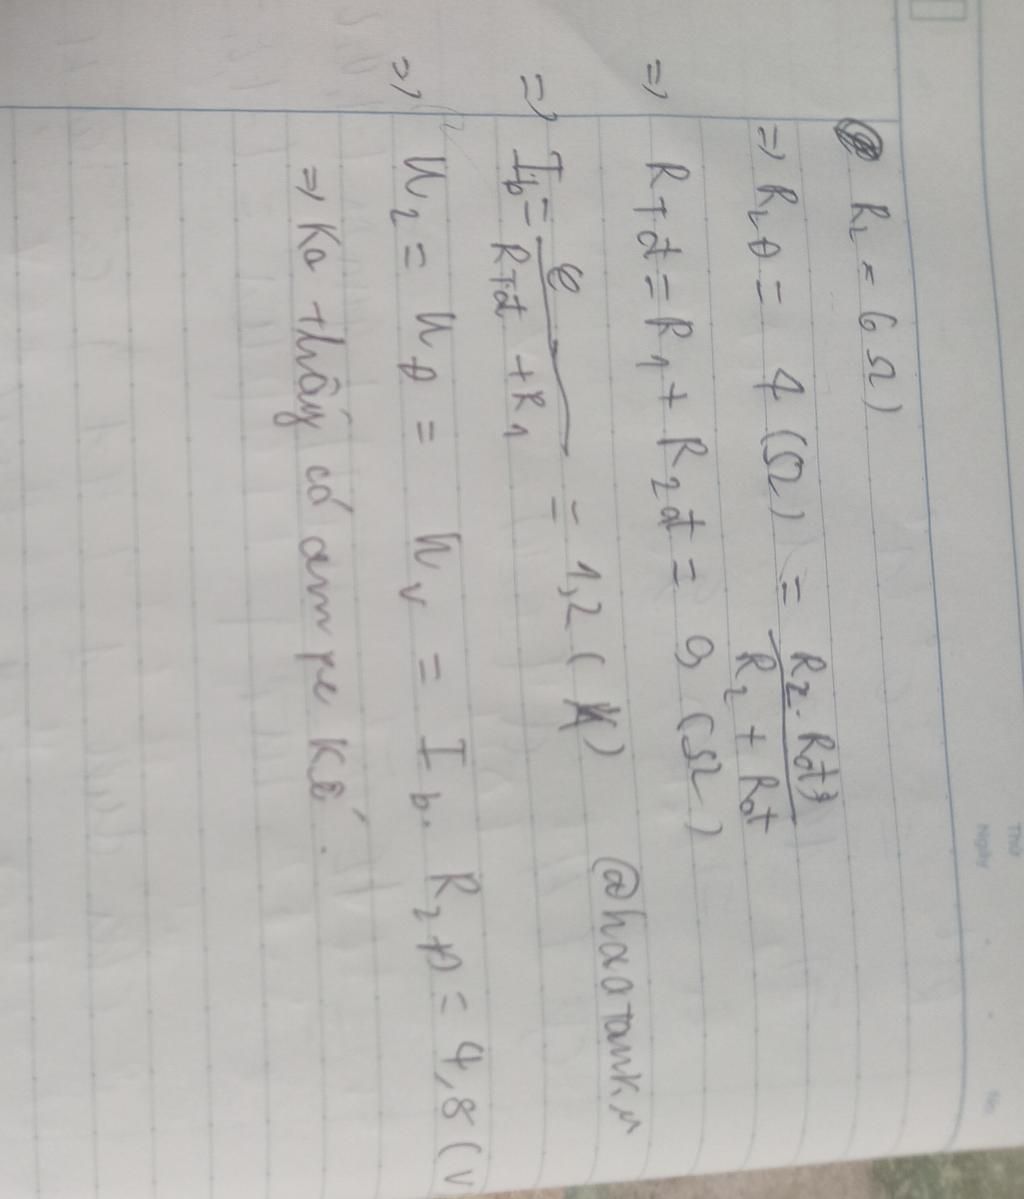 R₂ = 6 Ω)
⇒ R₂đ = 4 (Ω) = R₂.Rđ / R₂ + Rđ
⇒ RTđ = R₁ + R₂đ = 9 (Ω)
@haotank
⇒ Ib = e / RTđ + R₁ = 1,2 (A)
⇒ U₂ = Uđ = Uv = Ib. R₂đ = 4,8 (V
⇒ Ko thấy có ampe kế.
Thứ
Ngày
No.